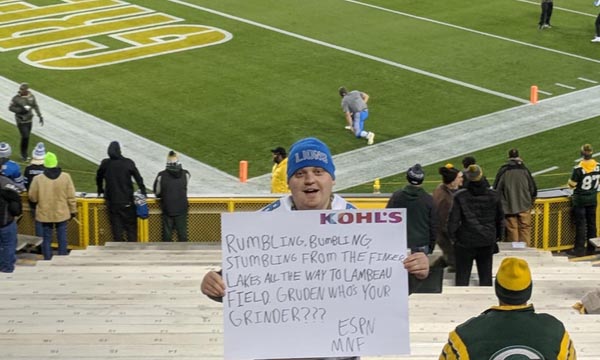 LIONS
KOHL'S
RUMBLING, BUMBLING,
STUMBLING FROM THE FINGER
LAKES ALL THE WAY TO LAMBEAU
FIELD. GRUDEN WHO'S YOUR
GRINDER???
ESPN
MNF
87